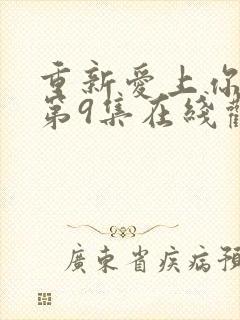 重新爱上你
第9集在线
廣東省疾病預